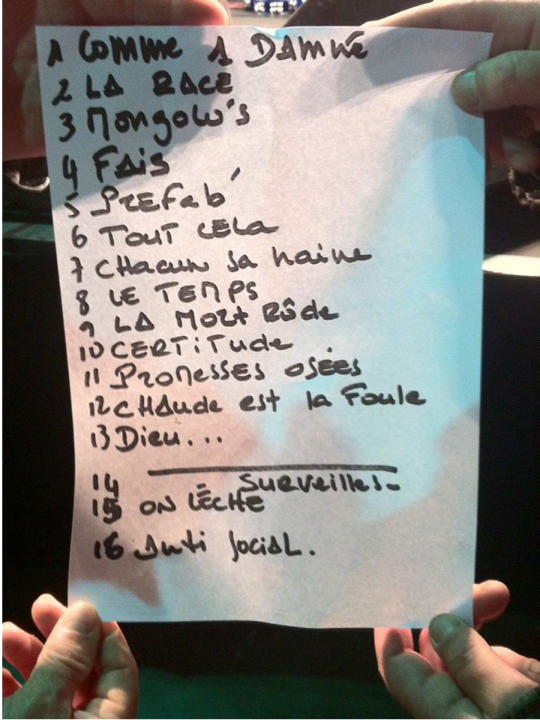 1 COMME 1 DAMNÉ
2 LA RACE
3 Mongolo's
4 FAIS
5 PREFab'
6 TOUT CELA
7 CHacun sa haine
8 LE TEMPS
9 LA MORT Rôde
10 CERTiTude
11 PROMESSES OSÉES
12 CHAude est la Foule
13 Dieu...
14 SURVEILLES-
15 ON LÈCHE
16 Anti SociAL.